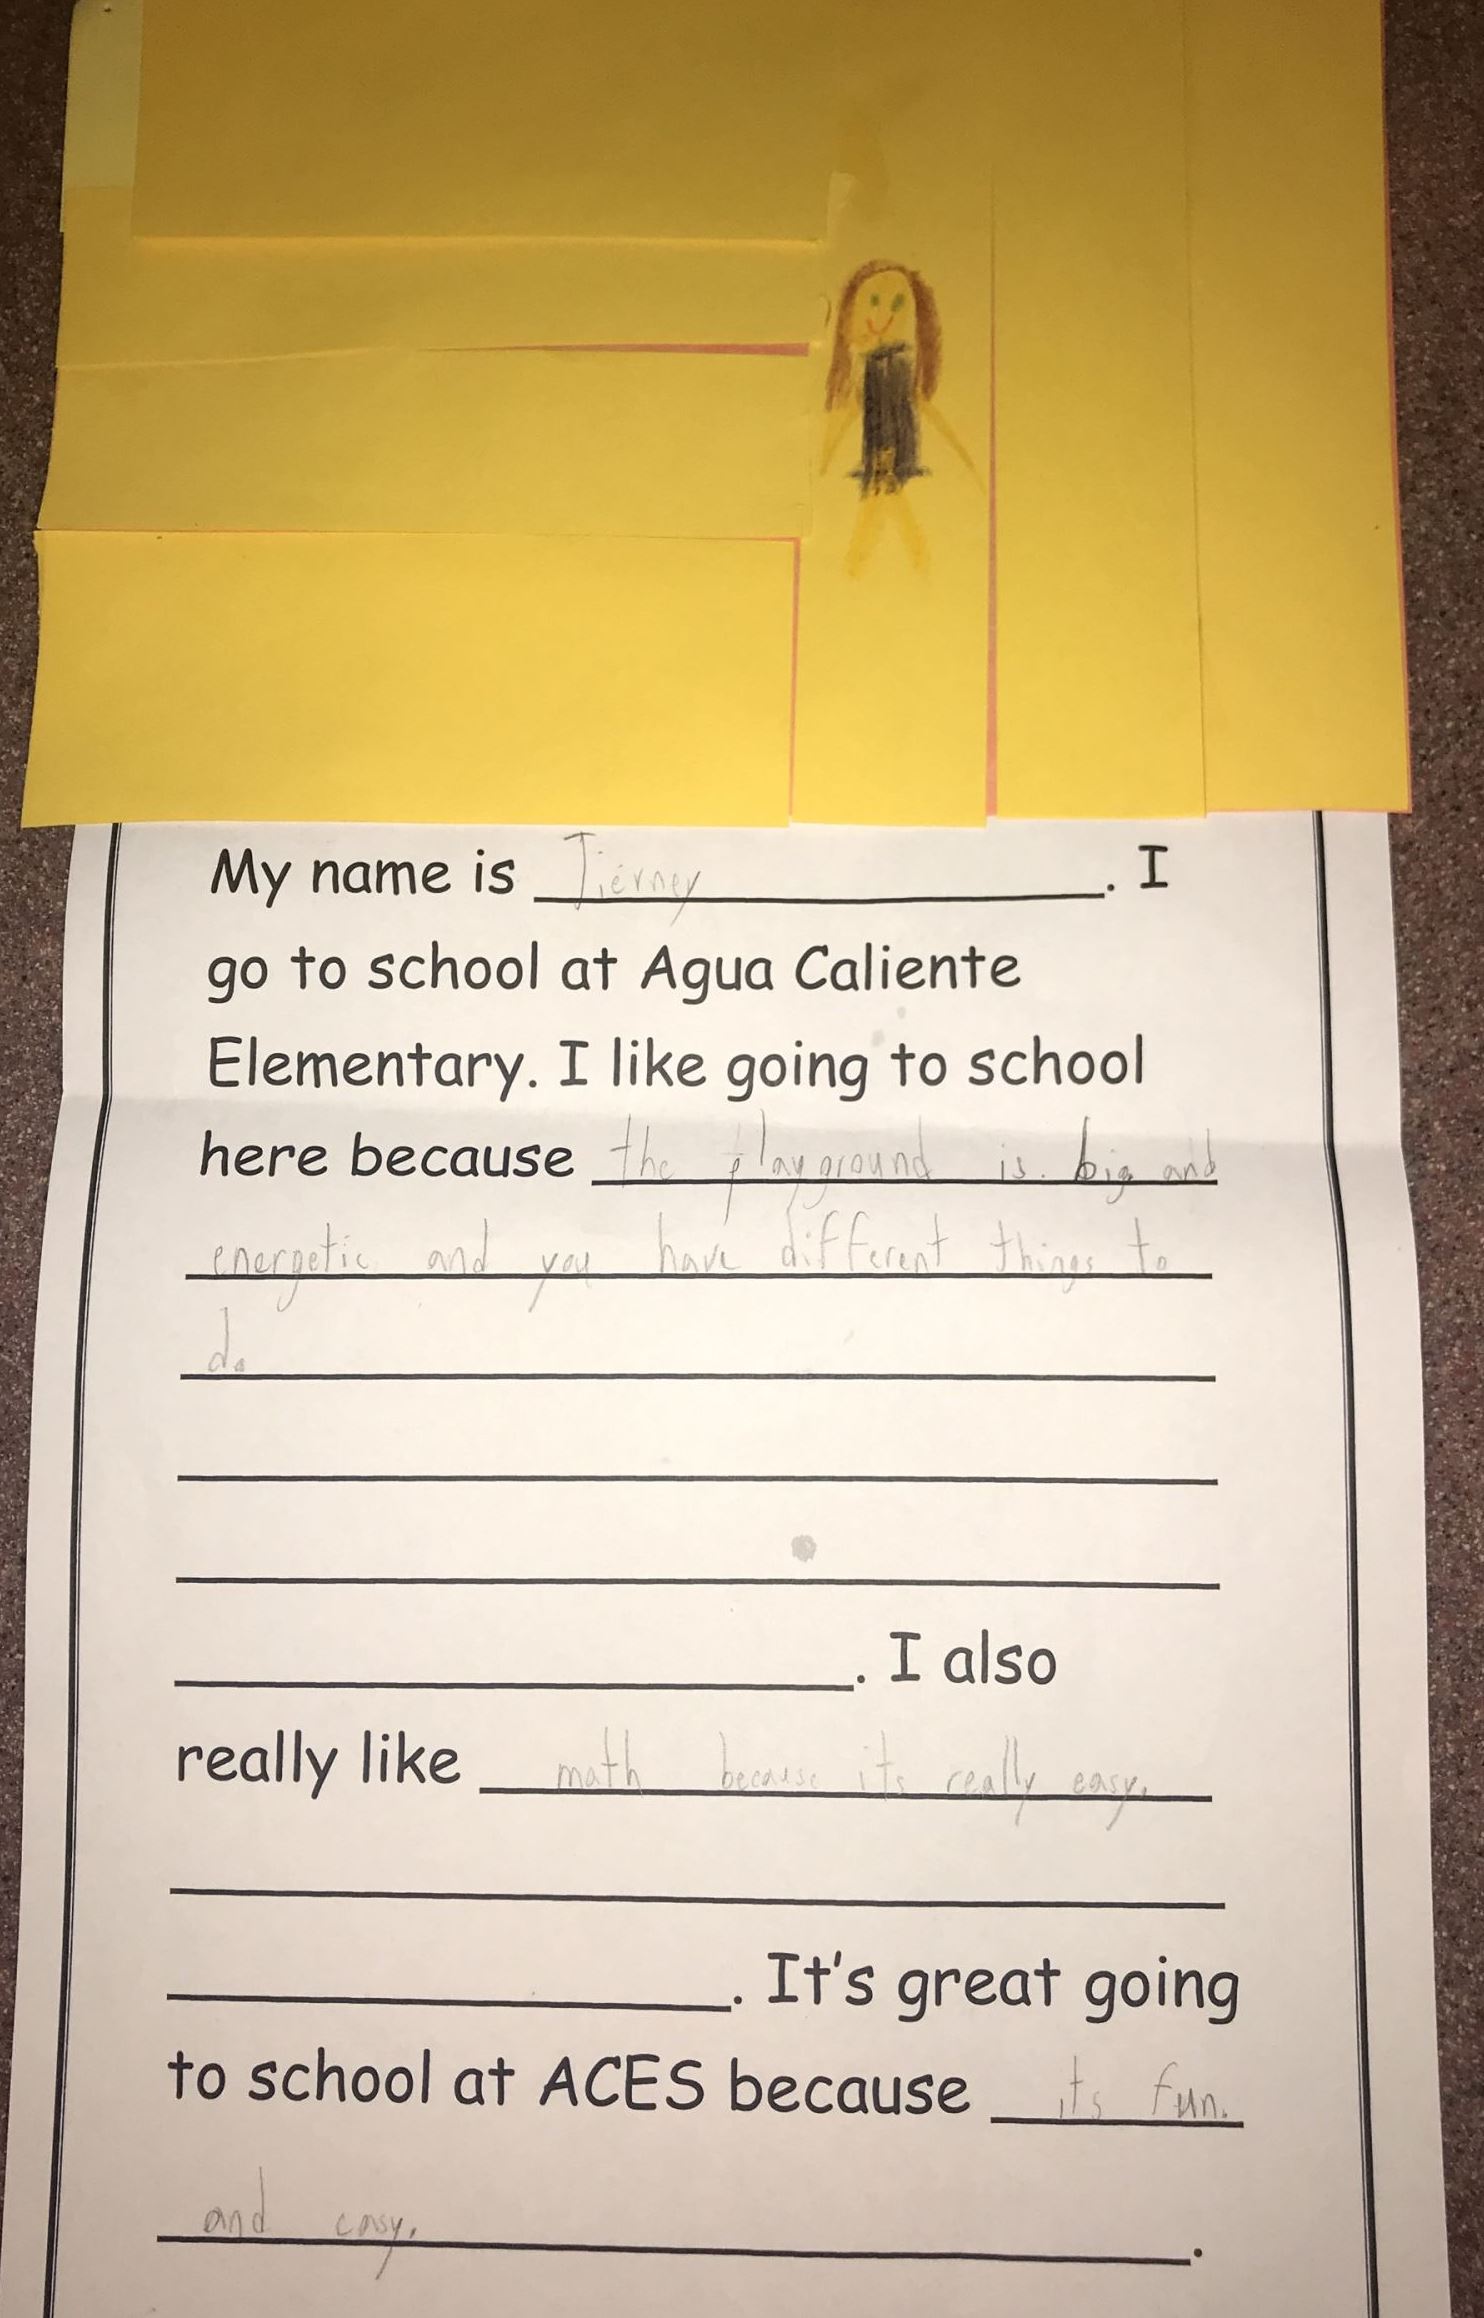 My name is Tierney. I
go to school at Agua Caliente
Elementary. I like going to school
here because the playground is big and
energetic and you have different things to
do
. I also
really like math because its really easy.
. It's great going
to school at ACES because its fun.
and easy. .